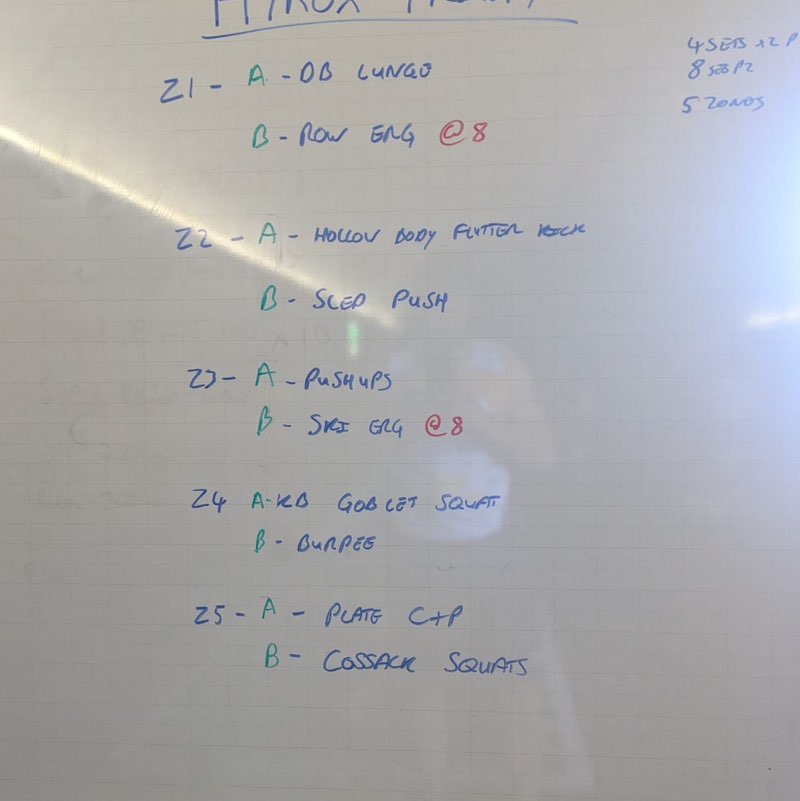 HYROX
4 SETS x2 P
8 SETS P2
5 ZONES
Z1 - A - DB LUNGE
B - ROW ERG @8
Z2 - A - HOLLOW BODY FLUTTER KICK
B - SLED PUSH
Z3 - A - PUSHUPS
B - SKI ERG @8
Z4 A - KB GOBLET SQUAT
B - BURPEE
Z5 - A - PLATE C+P
B - COSSACK SQUATS